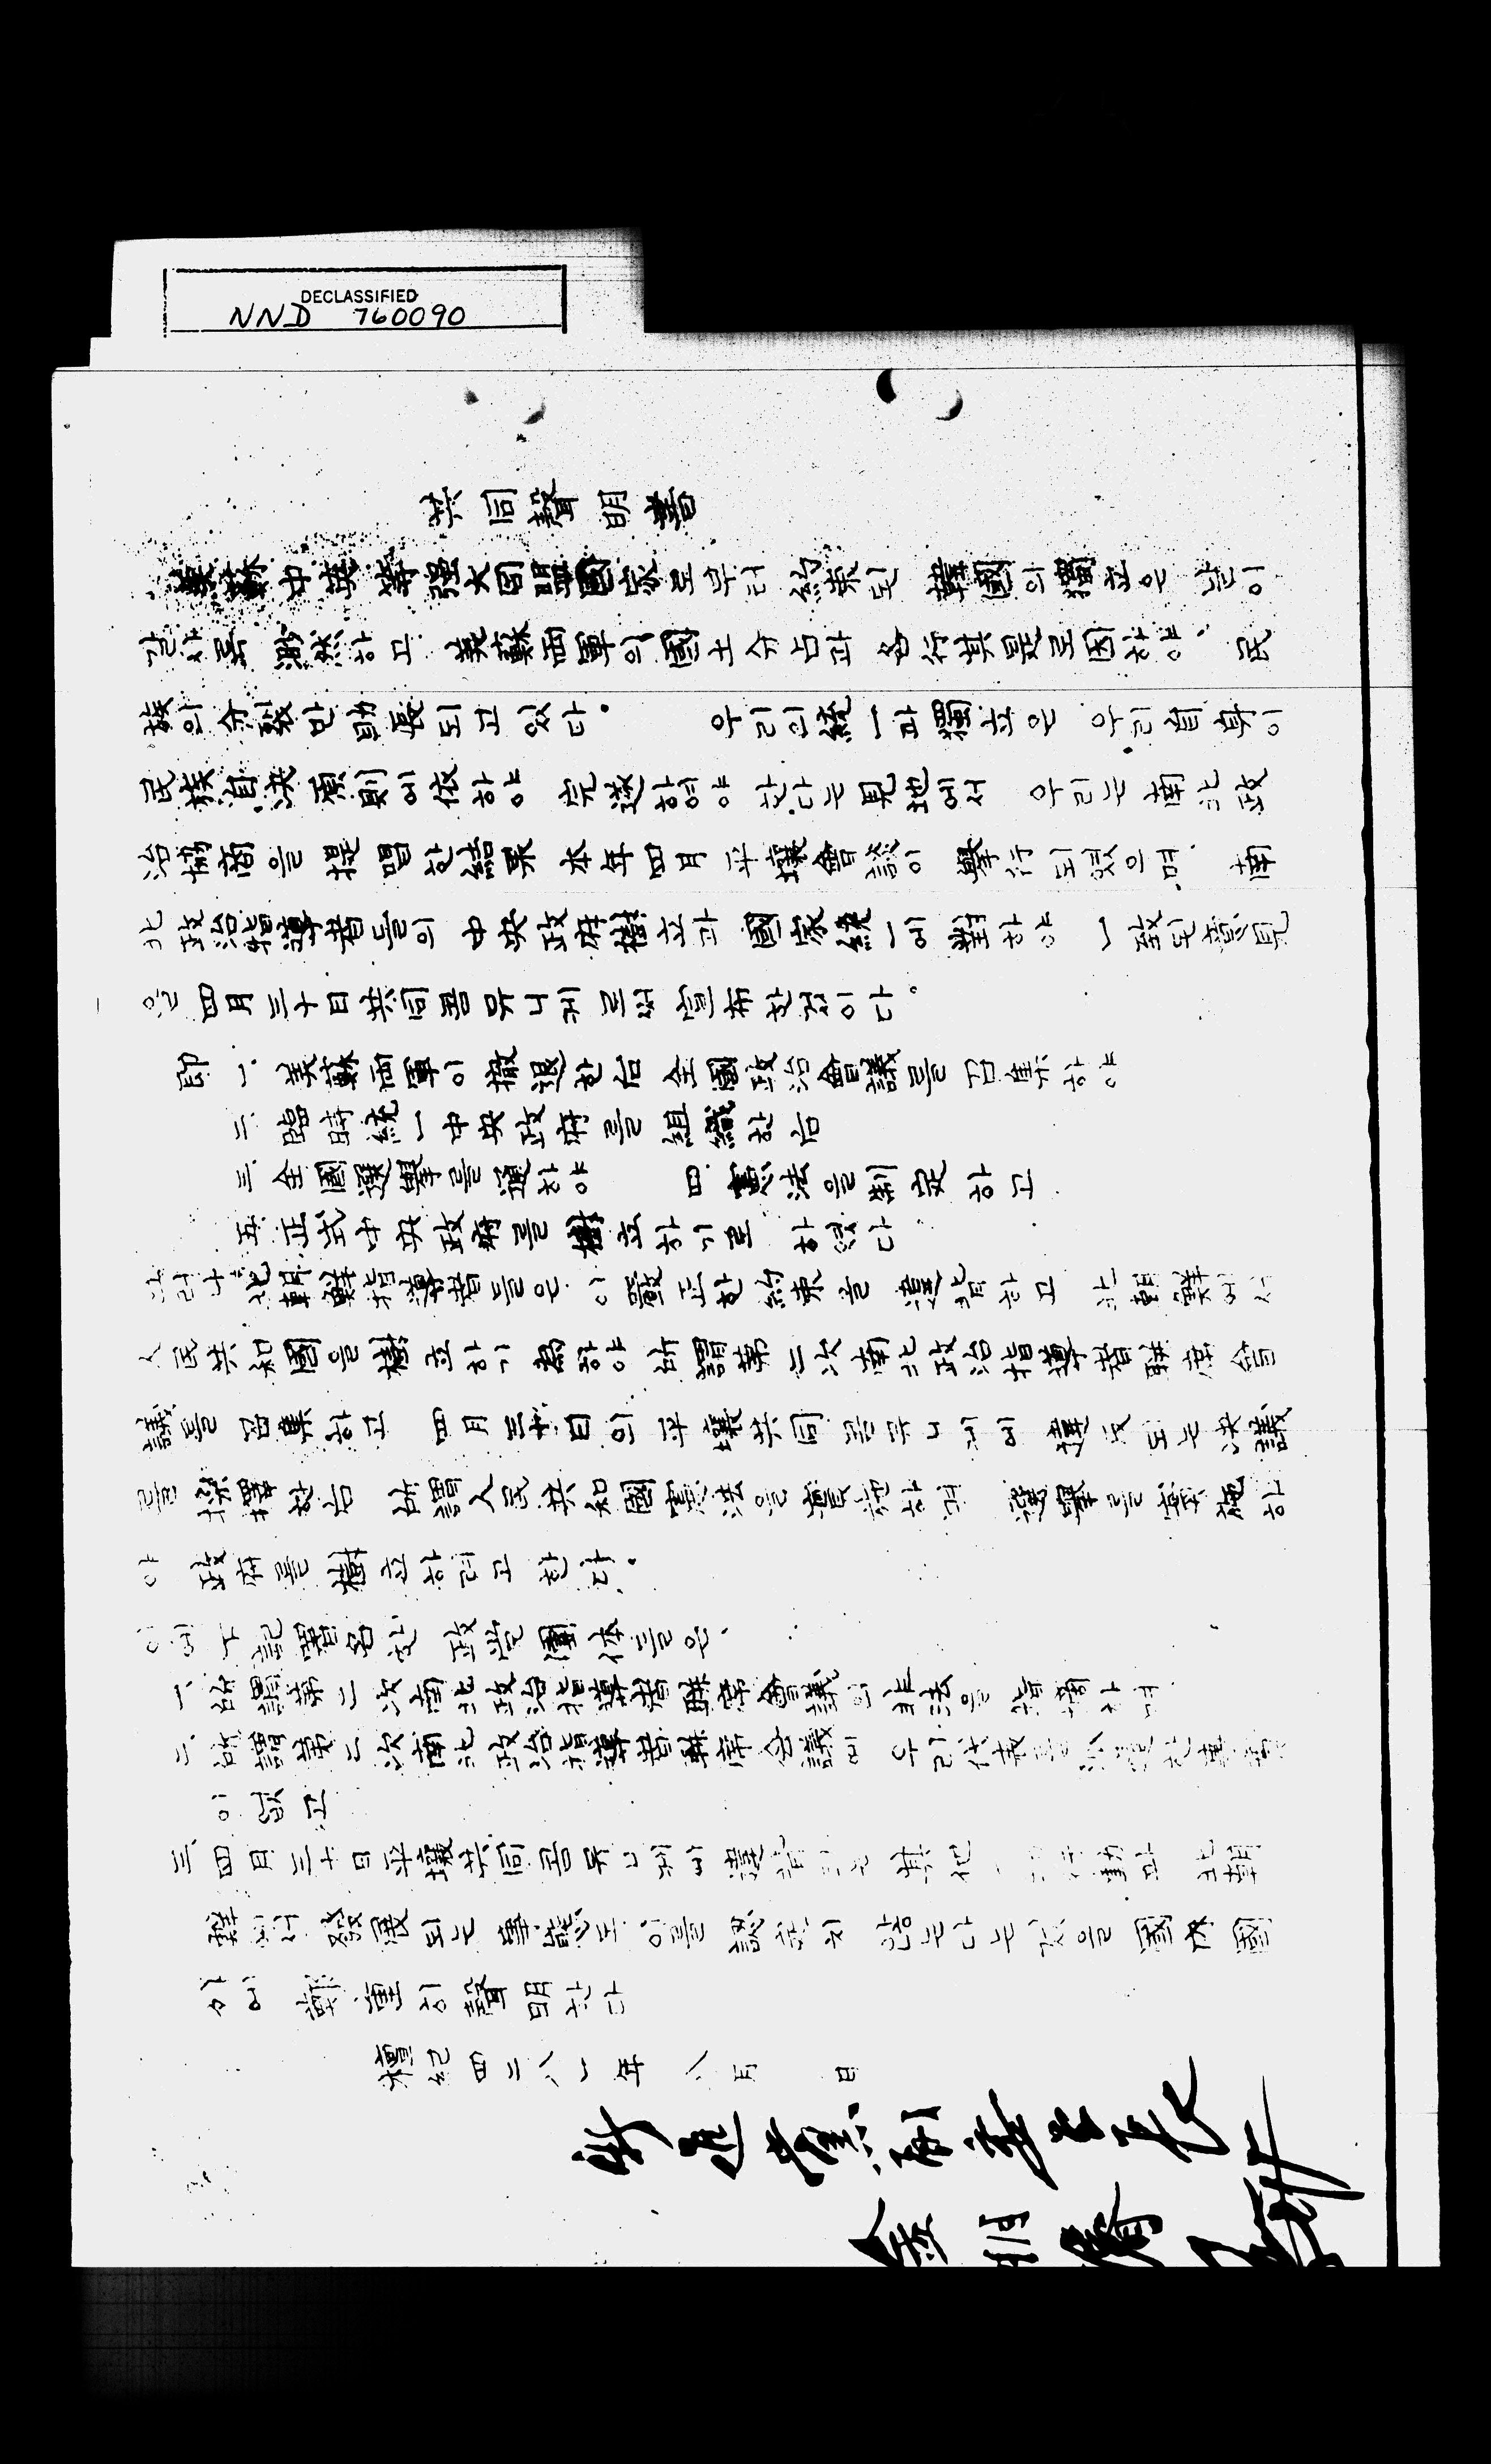 DECLASSIFIED
NND 760090
共同聲明書
美蘇中英 等强大同盟國家로부터 約束된 韓國의獨立은 날이
갈사록 渺然하고 美蘇両軍의國土分占과 各行其是로因하야、民
族의分裂만助長되고있다。 우리의統一과獨立은 우리自身이
民族自決原則에依하야 完遂하여야 한다는見地에서 우리는南北政
治協商을 提唱한結果 本年四月 平壤會談이 擧行되였으며、南
北 政治指導者들의 中央政府樹立과 國家統一에對하야 一致된意見
을 四月三十日共同콤뮤니케로써 宣布한것이다。
即 一、美蘇両軍이撤退한后 全國政治會議를召集하야
二、臨時統一中央政府를組織한后
三、全國選擧를通하야 四、憲法을制定하고
五、正式中央政府를樹立하기로 하였다
그러나 北朝鮮指導者들은 이嚴正한約束을 違背하고 北朝鮮에서
人民共和國을樹立하기 爲하야 所謂第二次南北政治指導者聯席會
議를 召集하고 四月三十日의平壤共同콤뮤니케에 違反되는決議
를 採擇한后 所謂人民共和國憲法을實施하며 選擧를實施하
야 政府를樹立하려고 한다。
이에 下記署名한 政党團体들은、
一、所謂第二次南北政治指導者聯席會議의非法을指摘하며
二、所謂第二次南北政治指導者聯席会議에 우리代表를派遣한事實
이없고
三、四月三十日平壤共同콤뮤니케에違背되는 其他 北朝
鮮에서 發展되는事態도 이를 認定치 않는다는것을國内國
外에 鄭重히聲明한다
檀紀四二八一年 八月 日